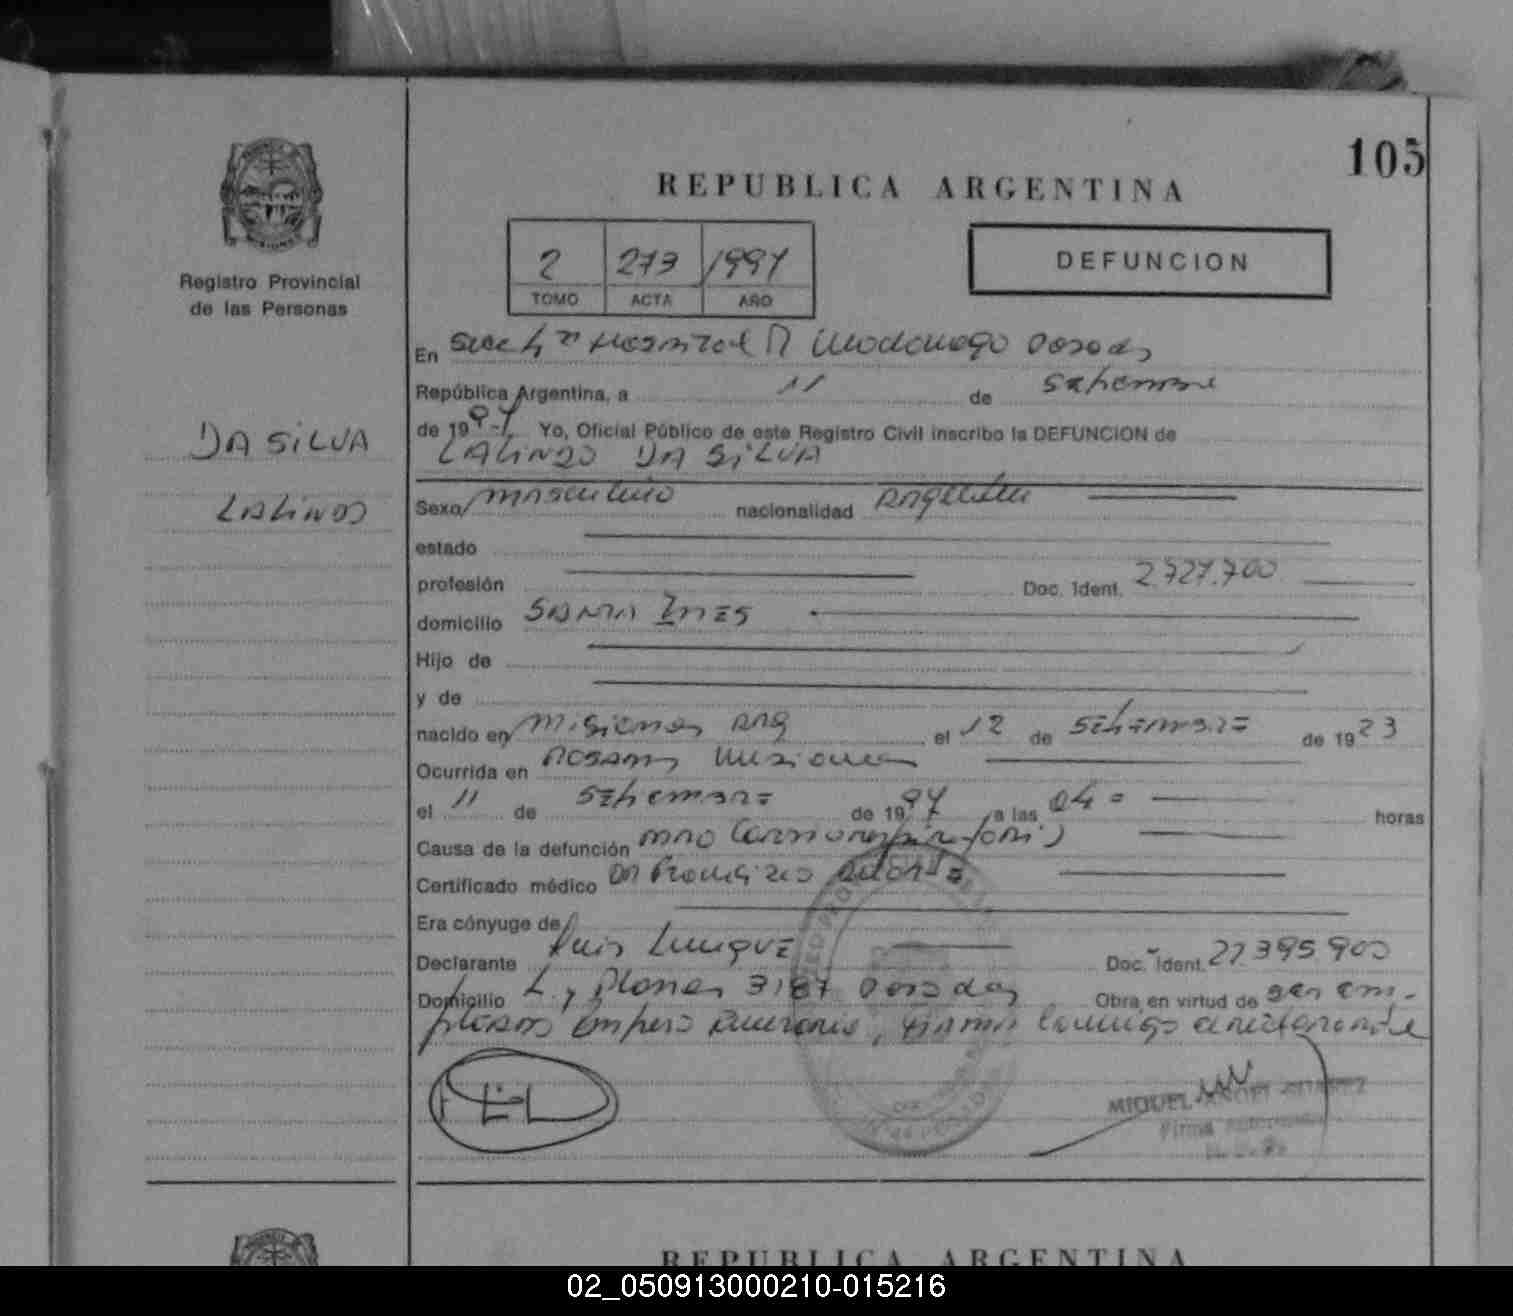 105
REPUBLICA ARGENTINA
Registro Provincial
de las Personas
2 273 1997
TOMO ACTA AÑO
DEFUNCION
En Hospital R Madariaga Posadas
República Argentina, a 11 de setiembre
de 1997 Yo, Oficial Público de este Registro Civil inscribo la DEFUNCION de
DA SILVA
DA SILVA
Sexo masculino nacionalidad Argentina
estado
profesión Doc. Ident. 2.727.700
domicilio SANTA INES
Hijo de
y de
nacido en Misiones Arg el 12 de setiembre de 1923
Ocurrida en Posadas Misiones
el 11 de setiembre de 1997 a las 04 horas
Causa de la defunción paro cardiorespiratorio
Certificado médico Dr Francisco
Era cónyuge de
Declarante Luis Luque Doc. Ident. 27.395.900
Domicilio L. y Planes 3187 Posadas Obra en virtud de ser em-
pleado Empresa Funeraria, firma conmigo
MIGUEL ANGEL
Firma
REPUBLICA ARGENTINA
02_050913000210-015216